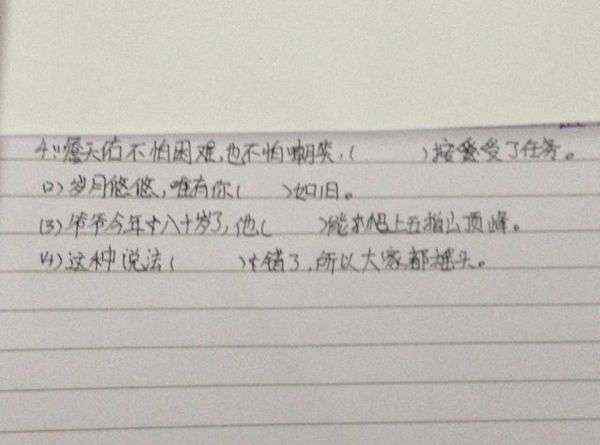 4.(1)詹天佑不怕困难,也不怕嘲笑,( )接受了任务。
(2)岁月悠悠,唯有你( )如旧。
(3)爷爷今年八十岁了,他( )能爬上五指山顶峰。
(4)这种说法( )错了,所以大家都摇头。